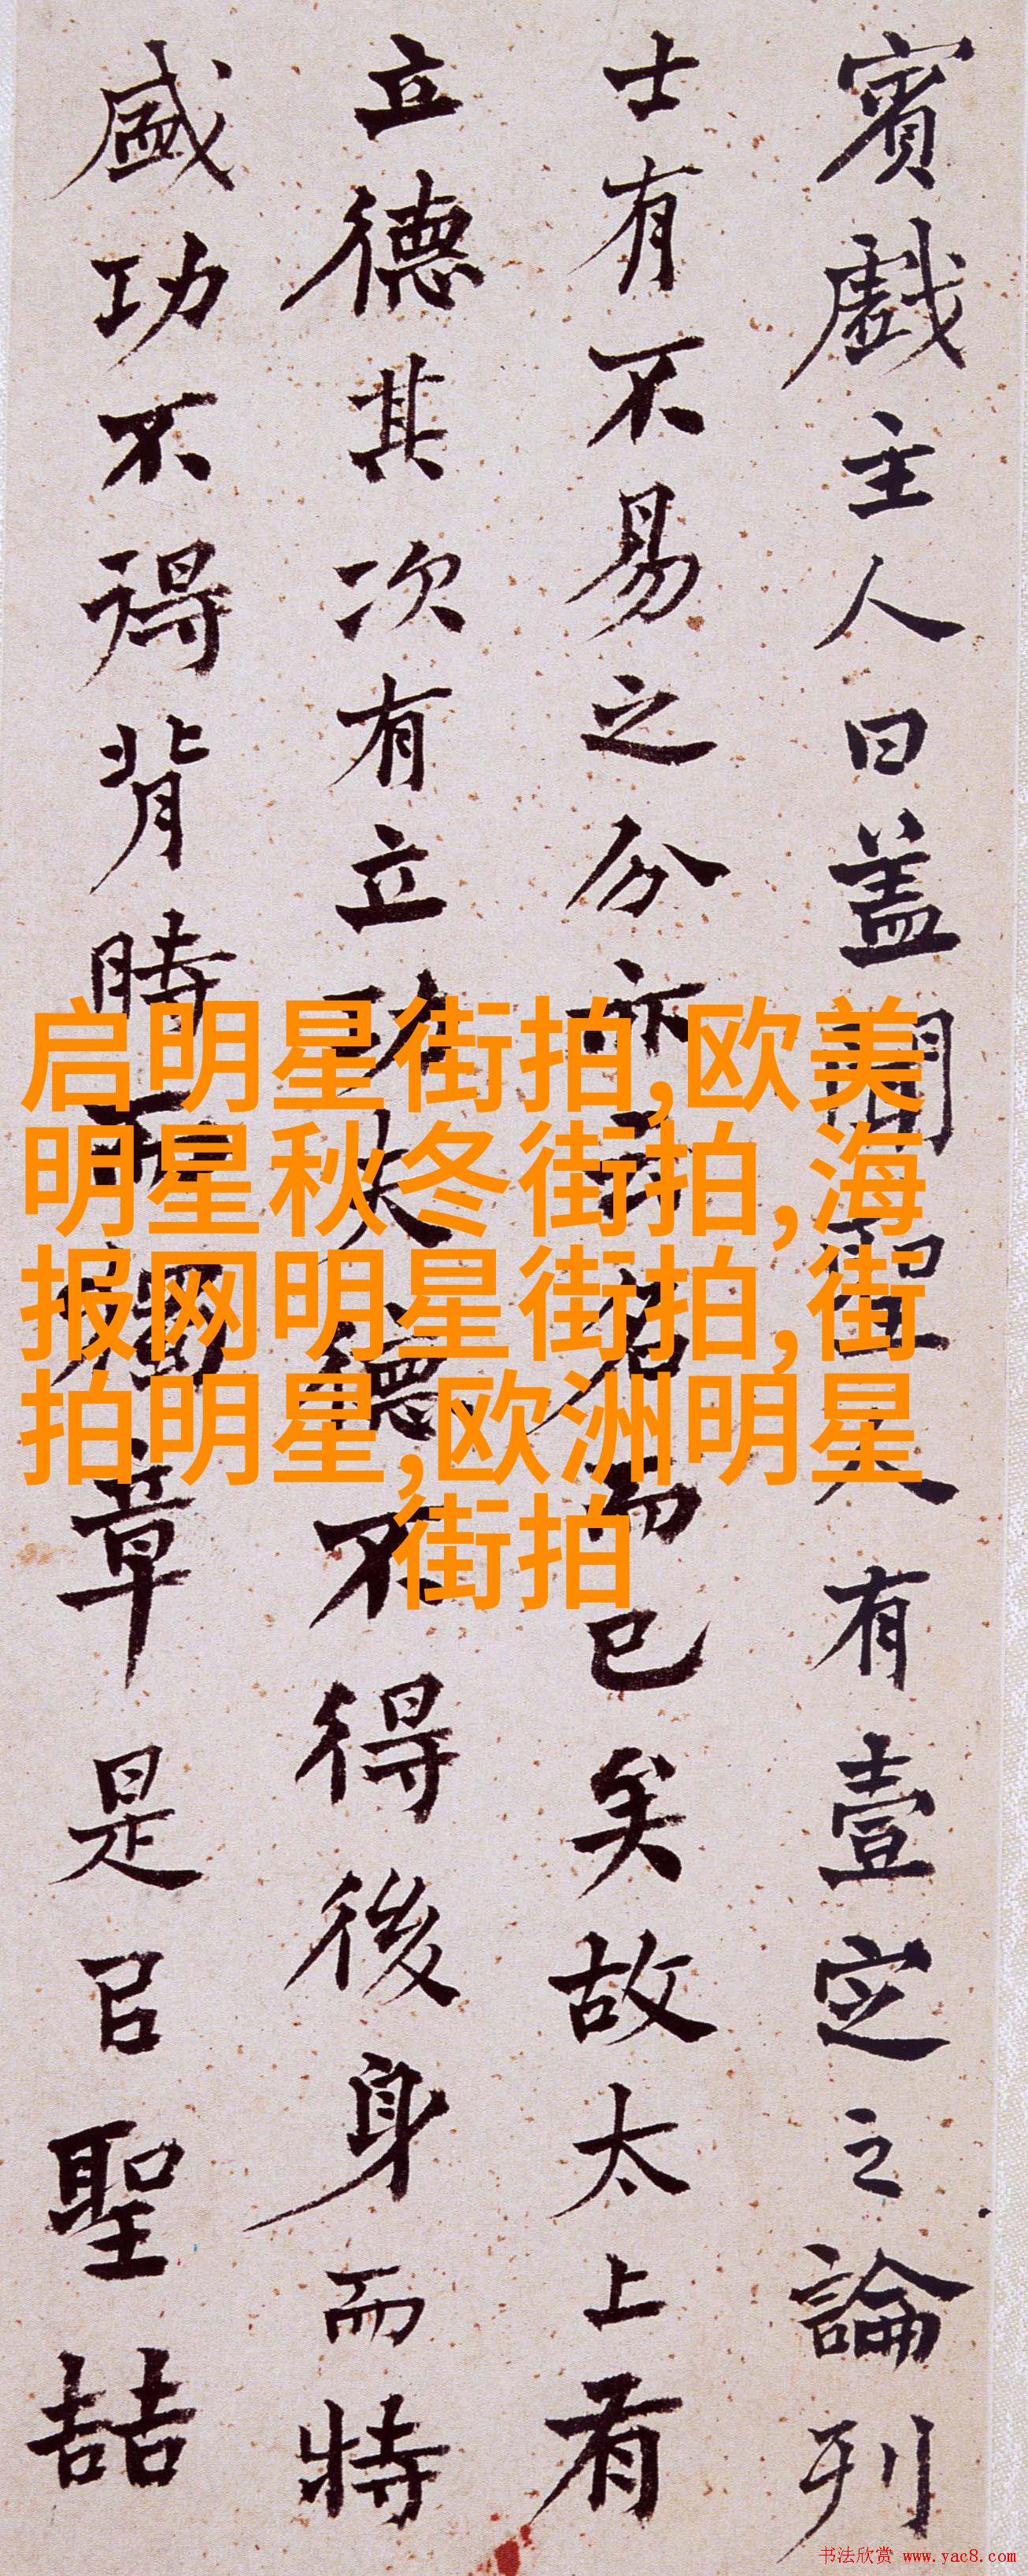 賓戲主人曰盖聞聖人有壹定之論列
士有不易之分亦云名而已矣故太上有
立德其次有立功夫德不得後身而特
盛功不得背時而獨章是㠯聖喆
启明星街拍,欧美
明星秋冬街拍,海
报网明星街拍,街
拍明星,欧洲明星
街拍
书法欣赏 www.yac8.com